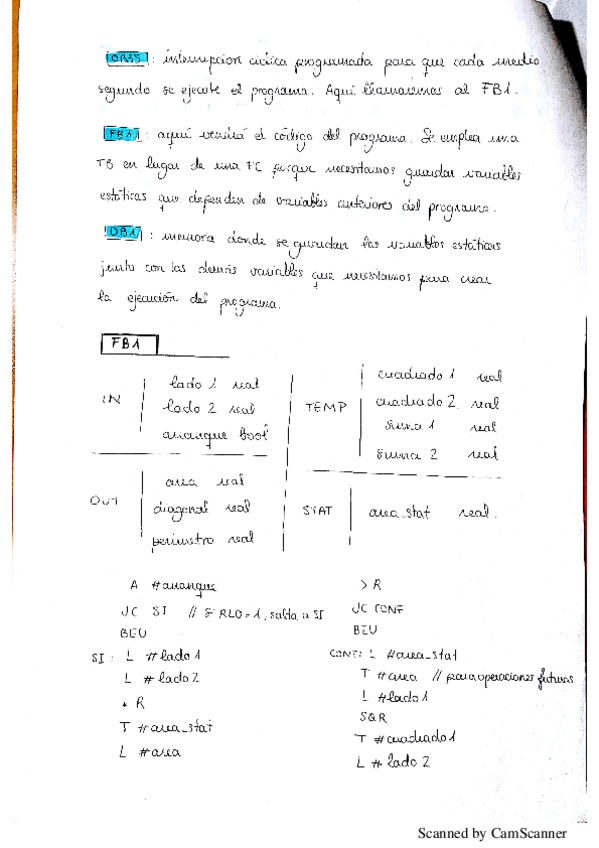 OB35: interrupcion cíclica programada para que cada medio
segundo se ejecute el programa. Aquí llamaremos al FB1.
FB1: aquí vendrá el código del programa. Se emplea una
FB en lugar de una FC porque necesitamos guardar variables
estáticas que dependen de variables anteriores del programa.
DB1: memoria donde se guardan las variables estáticas
junto con las demás variables que necesitamos para crear
la ejecución del programa.
FB1
IN
lado 1 real
lado 2 real
arranque bool
TEMP
cuadrado 1 real
cuadrado 2 real
suma 1 real
suma 2 real
OUT
area real
diagonal real
perimetro real
STAT
area_stat real.
A #arranque
JC SI // Si RLO=1, salta a SI
BEU
SI: L #lado1
L #lado2
* R
T #area_stat
L #area
> R
JC CONT
BEU
CONT: L #area_stat
T #area // para operaciones futuras
L #lado1
SQR
T #cuadrado1
L #lado 2
Scanned by CamScanner